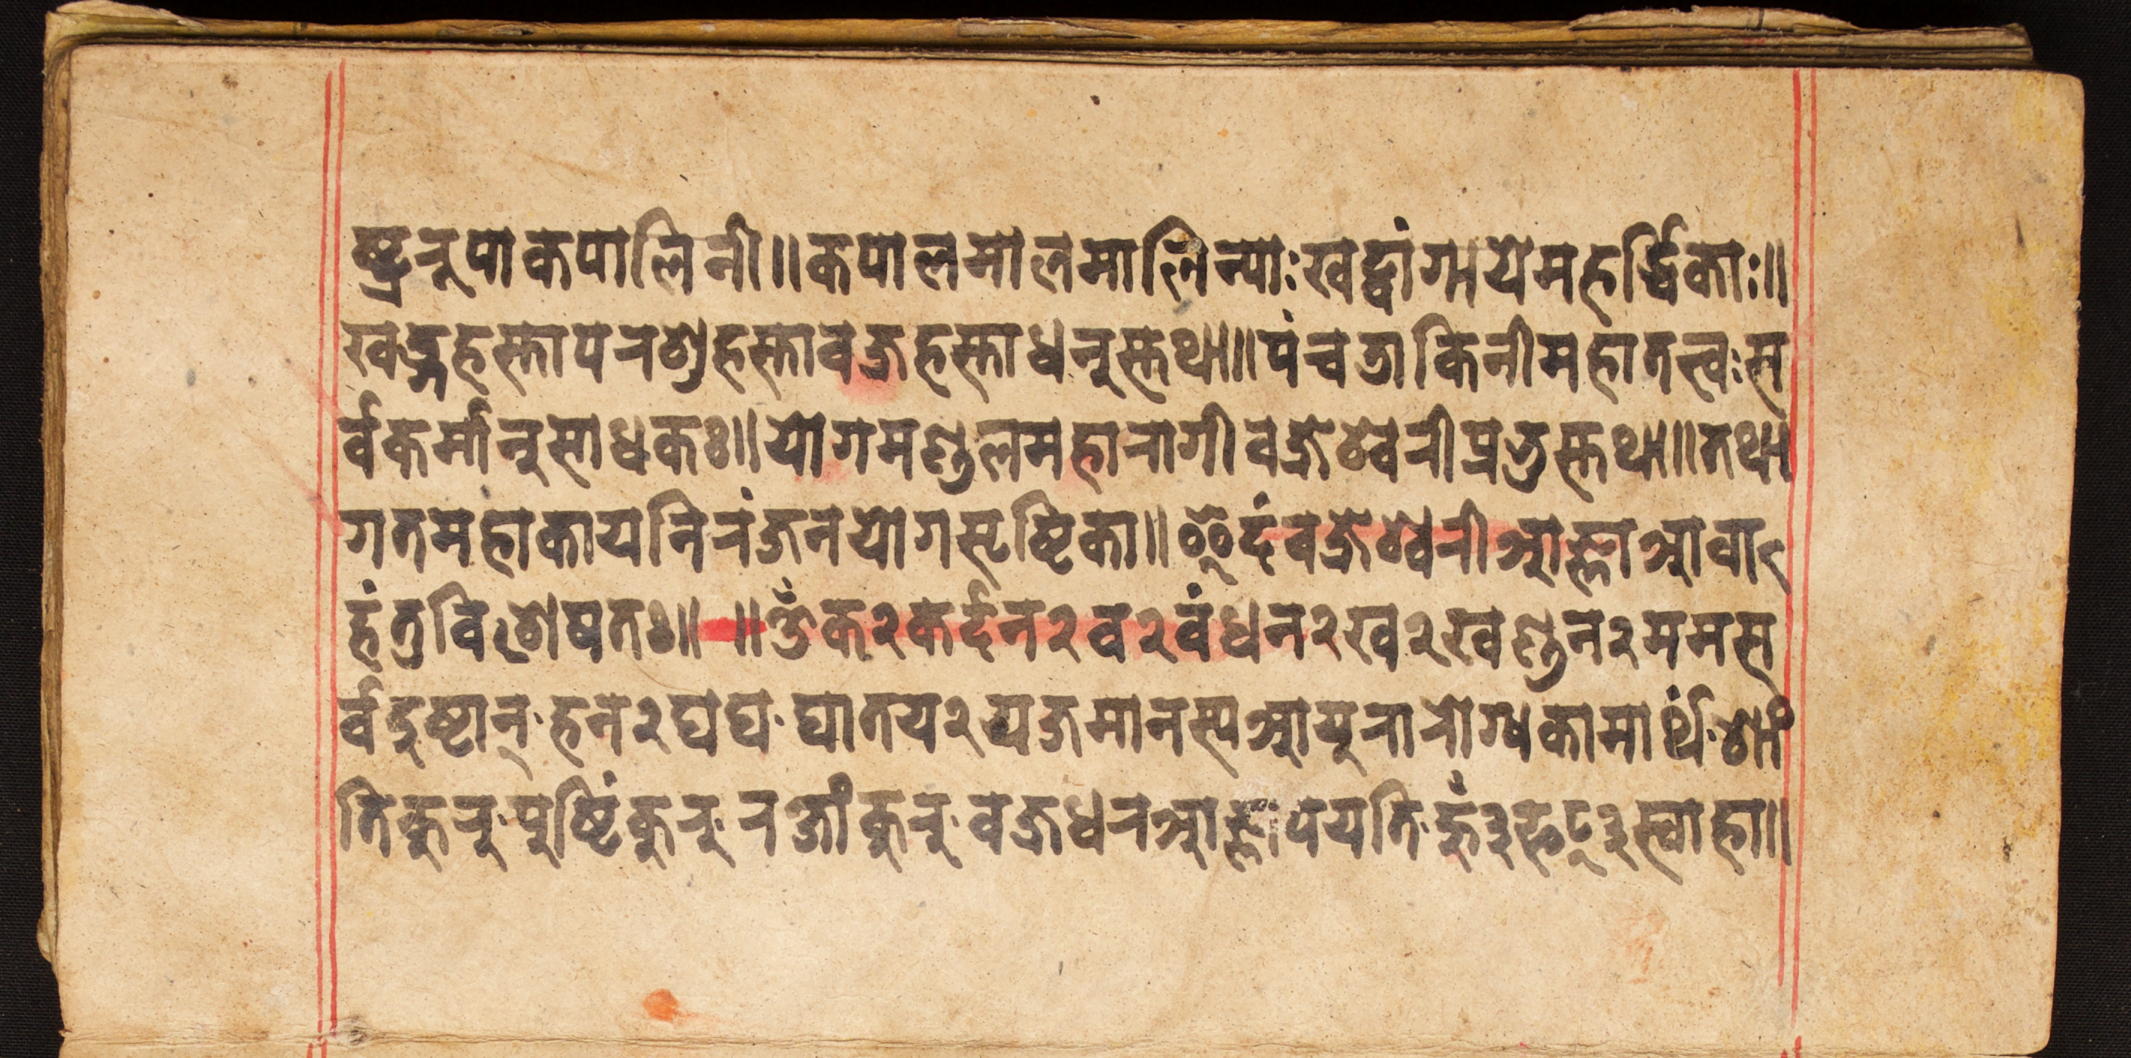 ष्ट्ररूपाकपालिनी॥कपालमालमालिन्याःखट्वांगायेमहर्द्धिकाः॥
खड्गहस्तापरशुहस्तावज्रहस्ताधनुस्तथा॥पंचडाकिनीमहातत्त्वःस
र्वकर्मानुसाधकः॥योगमण्डलमहारागीवज्रेश्वरीप्रभुस्तथा॥तथा
गतमहाकायनिरंजनयोगसृष्टिका॥इदंवज्रेश्वरीआज्ञाआवा
हंतुविशेषतः॥ ॥ॐक२कर्दन२व२वंधन२ख२खण्डन२ममस
र्वदुष्टान्·हन२घघ·घातय२यजमानस्यआयुरारोग्यकामार्थं·शां
तिकुरु·पुष्टिंकुरु·रक्षांकुरु·वज्रधरआज्ञापयति·हुँ३फट्३स्वाहा॥